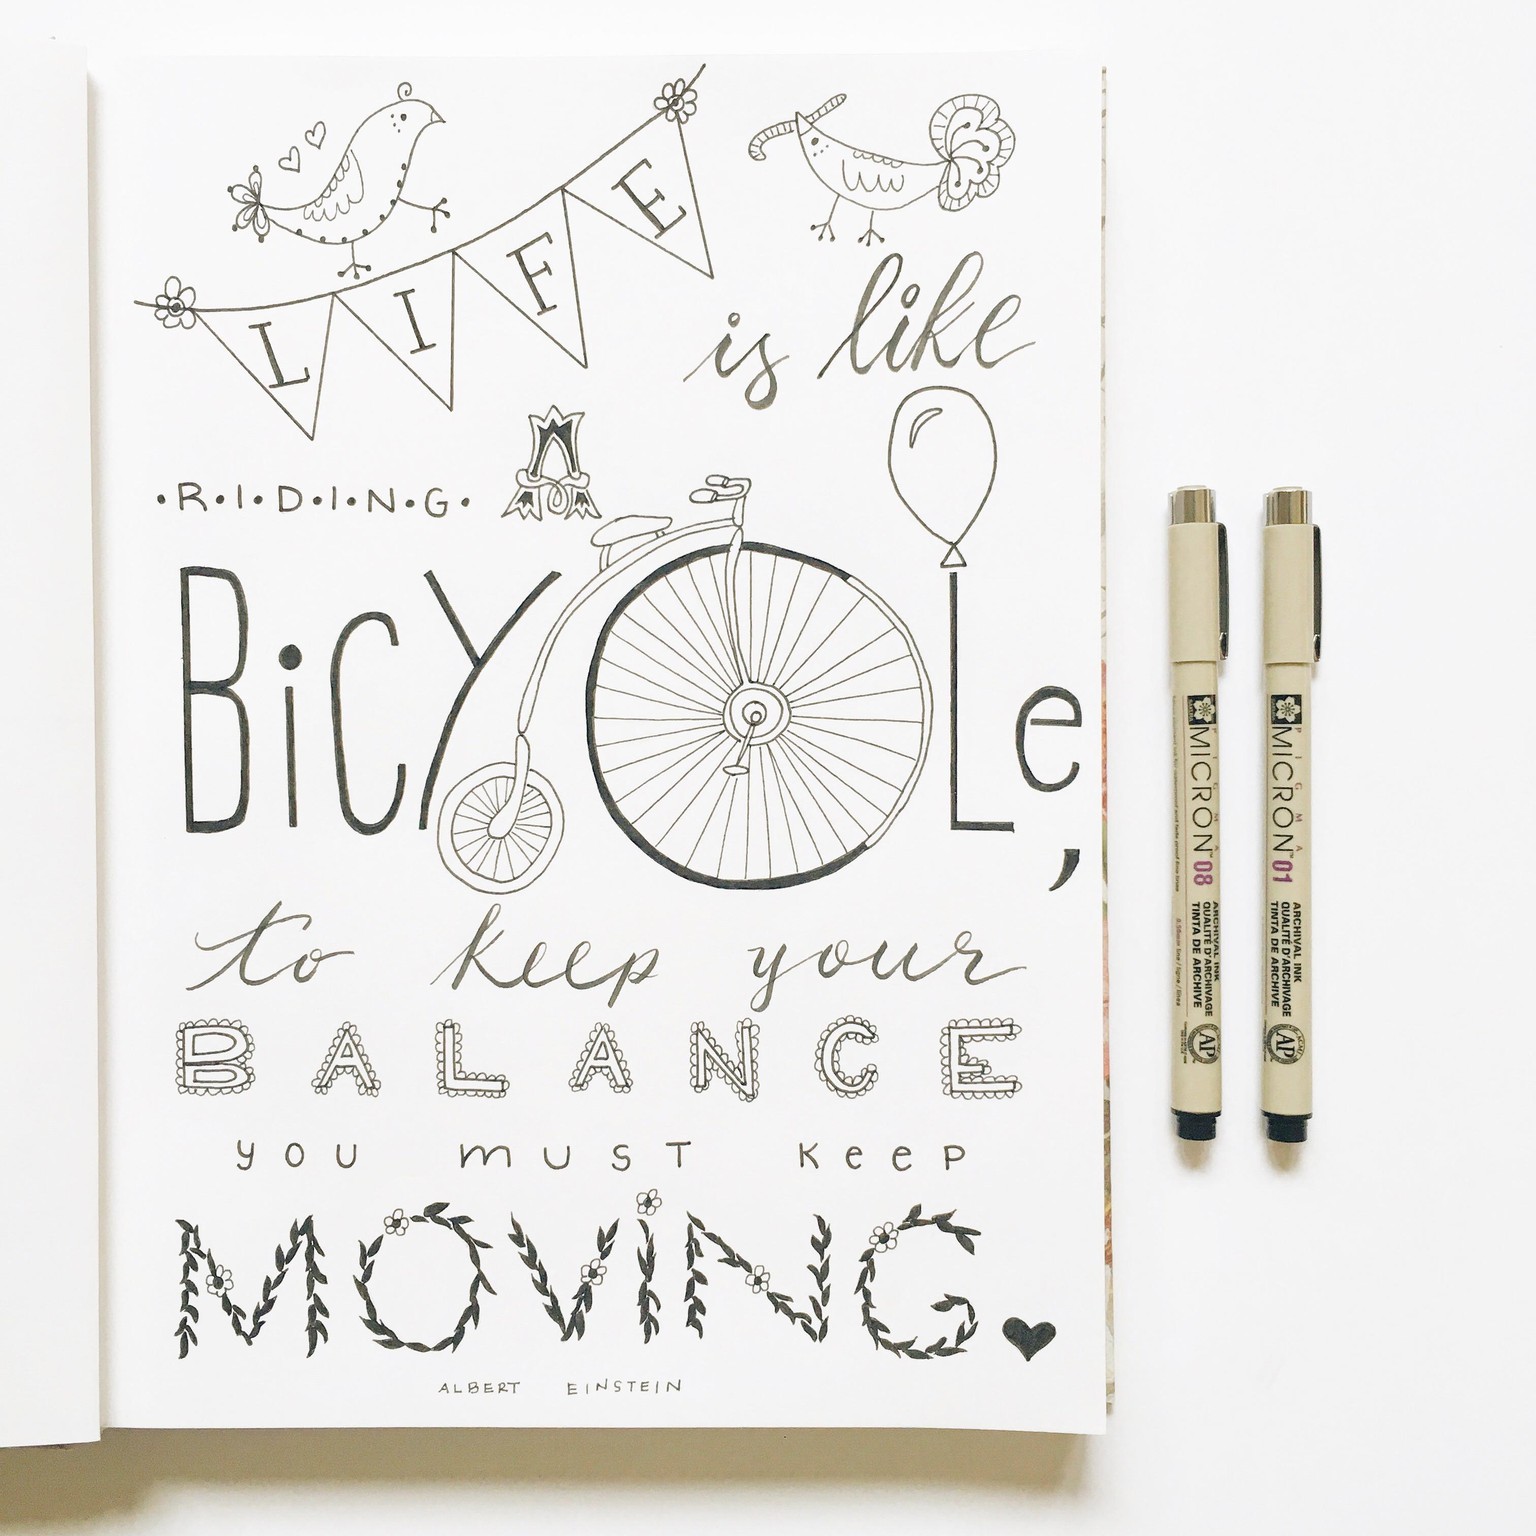 LIFE
is like
·R·I·D·I·N·G· A
BiCYCLe,
to keep your
BALANCE
you must keep
MOViNG.
ALBERT EINSTEIN
PIGMA
MICRON™ 08
ARCHIVAL INK
QUALITÉ D'ARCHIVAGE
TINTA DE ARCHIVE
AP
PIGMA
MICRON™ 01
ARCHIVAL INK
QUALITÉ D'ARCHIVAGE
TINTA DE ARCHIVE
AP